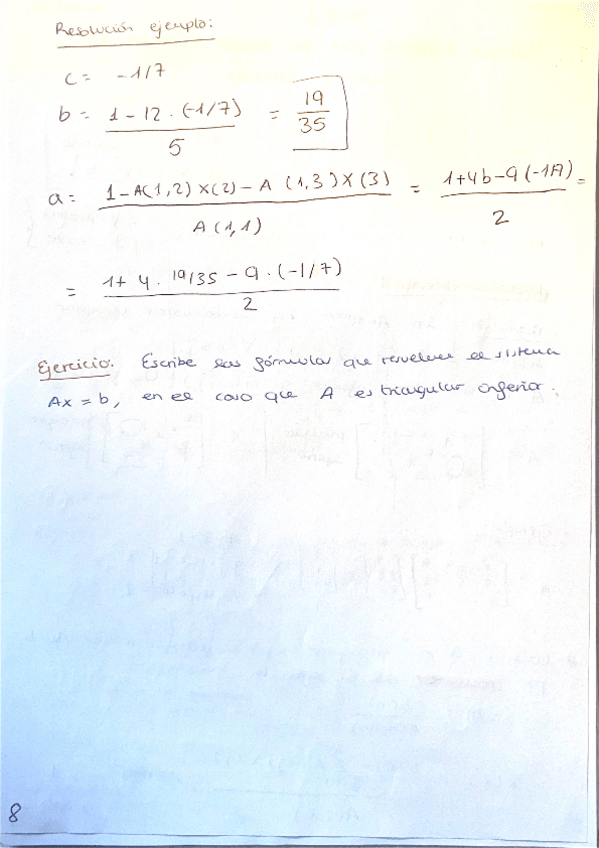 Resolución ejemplo:
c = -1/7
b = (1 - 12 · (-1/7)) / 5 = 19/35
a = (1 - A(1,2) X(2) - A (1,3) X (3)) / A(1,1) = (1 + 4b - 9(-1/7)) / 2 =
= (1 + 4 · 19/35 - 9 · (-1/7)) / 2
Ejercicio: Escribe las fórmulas que resuelven el sistema
Ax = b, en el caso que A es triangular inferior.
8